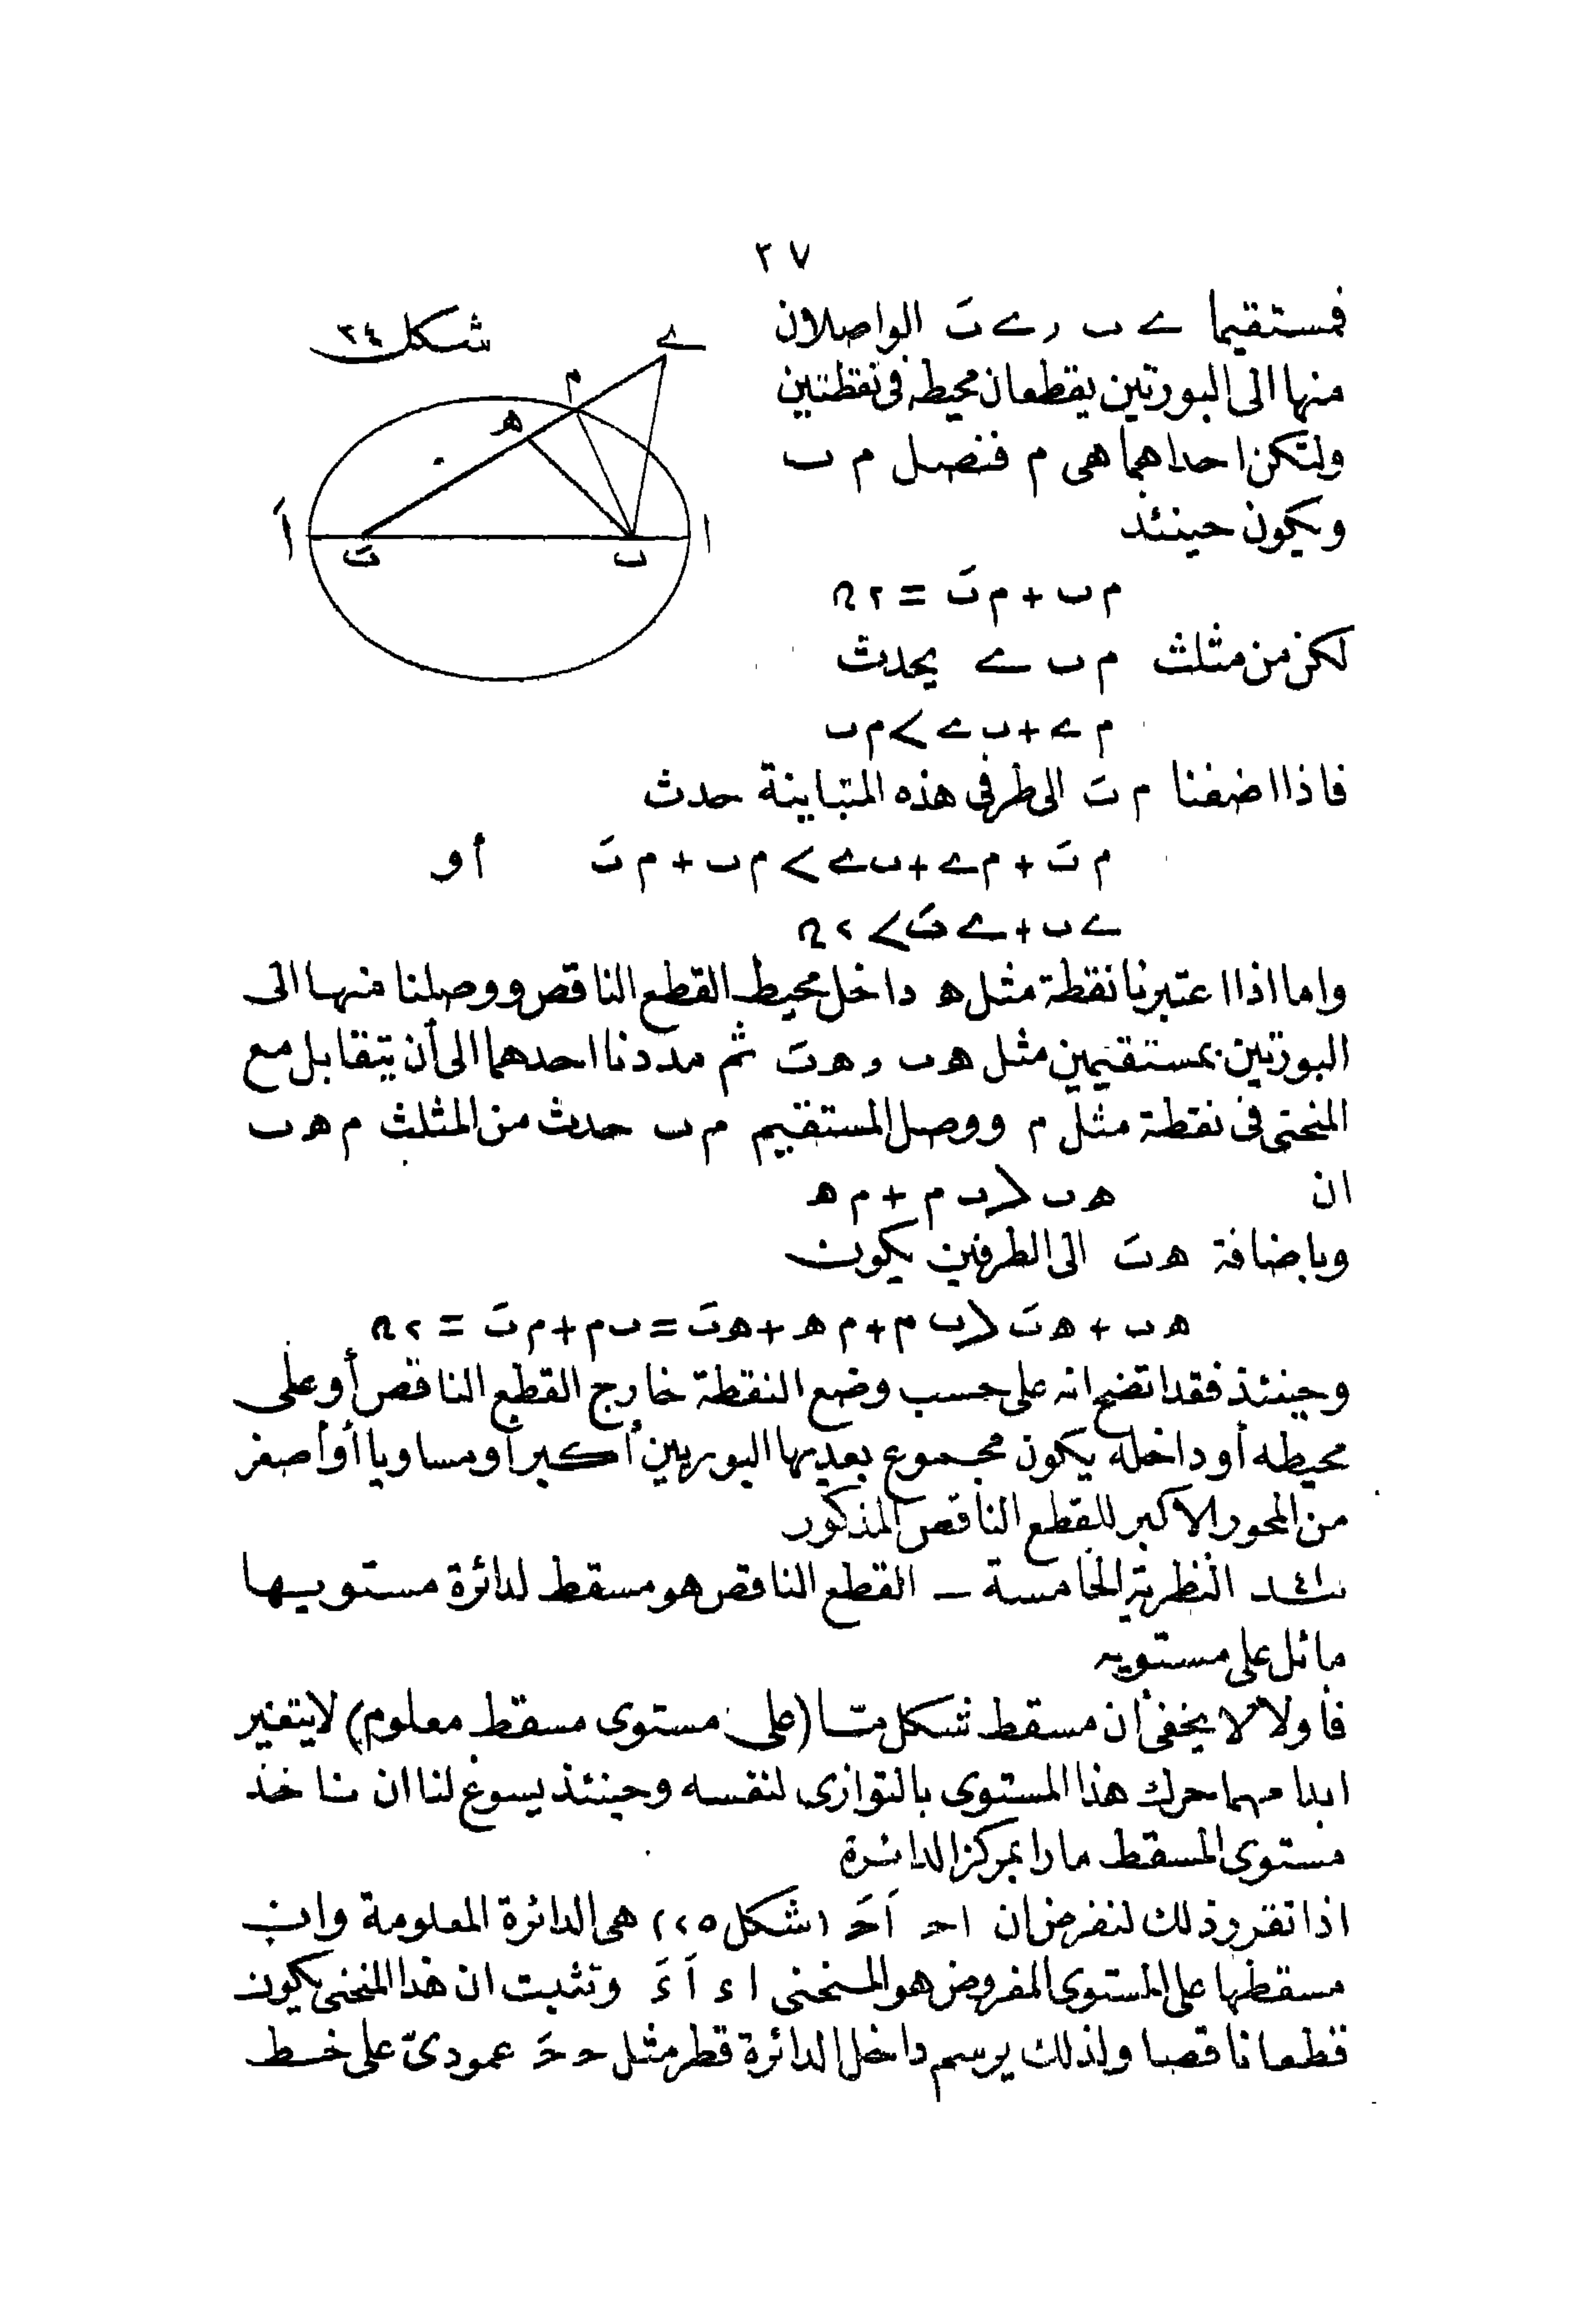 ٢٧
شكل ٢٤
فمستقيما ے ب و ے بَ الواصلان
منها الى البورتين يقطعان محيطه فى نقطتين
ولتكن احداهما هى م فنصل م ب
ويكون حينئذ
م ب + م بَ = ٢ ں
لكن من مثلث م ب ے يحدث
م ے + ب ے > م ب
فاذا اضفنا م بَ الى طرفى هذه المتباينة حدث
م بَ + م ے + ب ے > م ب + م بَ أو
ے ب + ے بَ > ٢ ں
واما اذا اعتبرنا نقطة مثل ھ داخل محيط القطع الناقص ووصلنا منها الى
البورتين بمستقيمين مثل ھ ب و ھ بَ ثم مددنا احدهما الى أن يتقابل مع
المنحنى فى نقطة مثل م ووصل المستقيم م ب حدث من المثلث م ھ ب
ان ھ ب < ب م + م ھ
وباضافة ھ بَ الى الطرفين يكون
ھ ب + ھ بَ < ب م + م ھ + ھ بَ = ب م + م بَ = ٢ ں
وحينئذ فقد اتضح انه على حسب وضع النقطة خارج القطع الناقص أو على
محيطه أو داخله يكون مجموع بعديها البوريين أكبر أو مساويا أو أصغر
من المحور الاكبر للقطع الناقص المذكور
النظرية الخامسة ـ القطع الناقص هو مسقط لدائرة مستويها
مائل على مستويه
فأولا لا يخفى أن مسقط شكل مّا (على مستوى مسقط معلوم) لا يتغير
ابدا مهما حرك هذا المستوى بالتوازى لنفسه وحينئذ يسوغ لنا ان ناخذ
مستوى المسقط مارا بمركز الدائرة
اذا تقرر ذلك لنفرض ان ا حـ اَ حـَ (شكل ٢٥) هى الدائرة المعلومة وان
مسقطها على المستوى المفروض هو المنحنى ا ء اَ ءَ ونثبت ان هذا المنحنى يكون
قطعا ناقصا ولذلك يرسم داخل الدائرة قطر مثل حـ حـَ عمودىّ على خط
ے
م
ھ
اَ
ا
بَ
ب